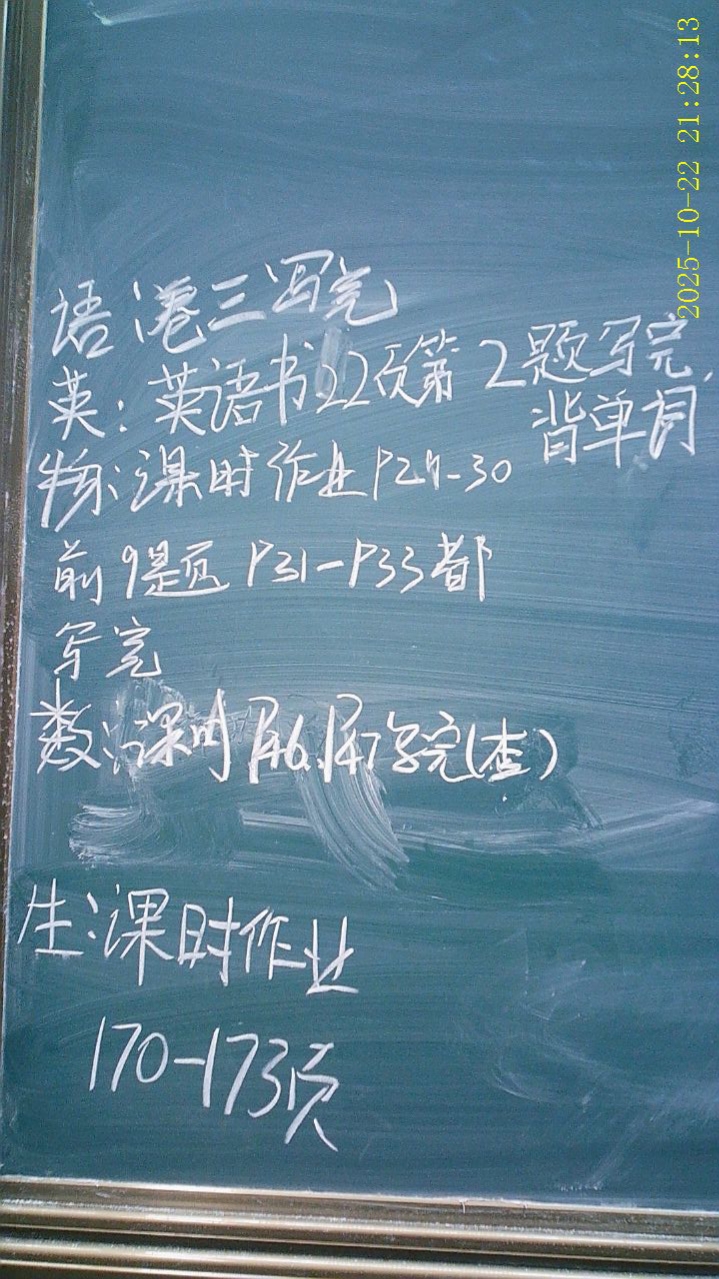 2025-10-22 21:28:13
语:卷三写完
英:英语书22页第2题写完,
背单词
物:课时作业P29-30
前9题 P31-P33都
写完
数:课时P46.P47写完(查)
生:课时作业
170-173页